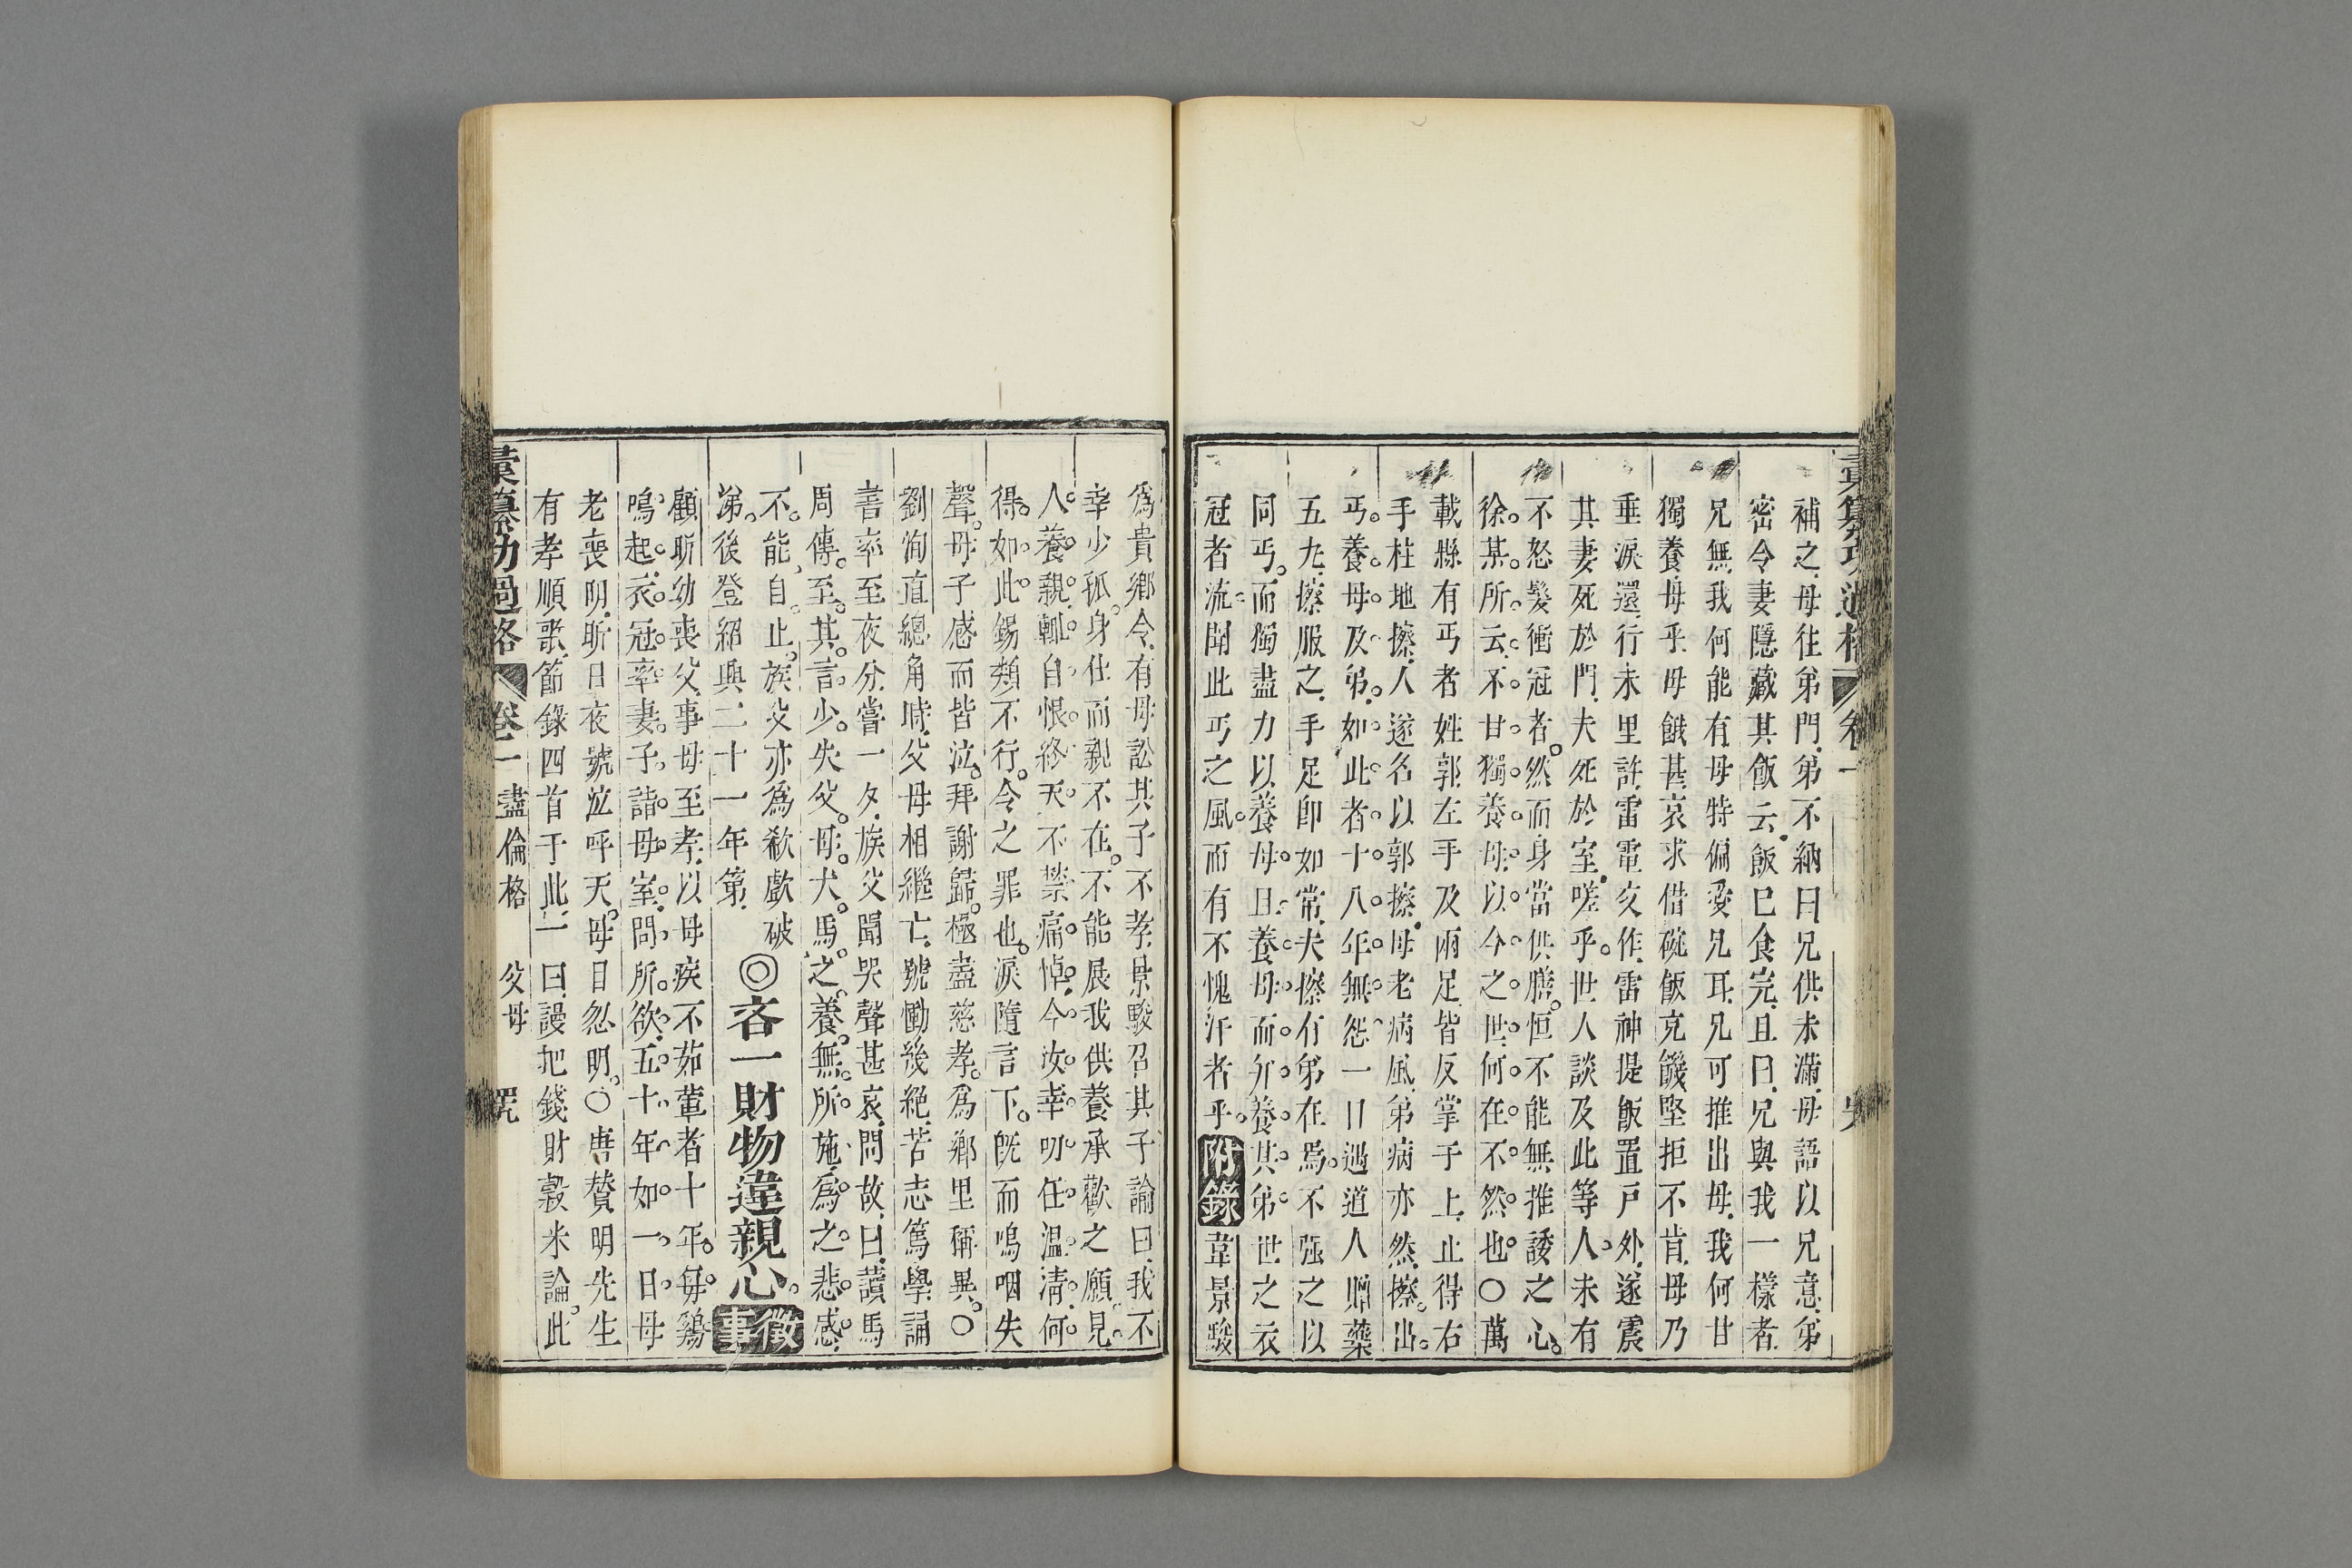 補之母往弟門弟不納曰兄供未滿母語以兄意弟
密令妻隱藏其飯云飯已食完且曰兄與我一樣者
兄無我何能有母特偏愛兄耳兄可推出母我何甘
獨養母乎母餓甚哀求借碗飯充饑堅拒不肯母乃
垂淚還行未里許雷電交作雷神提飯置戶外遂震
其妻死於門夫死於室嗟乎世人談及此等人未有
不怒髮衝冠者然而身當供膳恒不能無推諉之心
徐某所云不甘獨養母以今之世何在不然也○萬
載縣有丐者姓郭左手及兩足皆反掌于上止得右
手柱地擦人遂名以郭擦母老病風弟病亦然擦出
丐養母及弟如此者十八年無怨一日遇道人贈藥
五九擦服之手足卽如常夫擦有弟在焉不强之以
同丐而獨盡力以養母且養母而幷養其弟世之衣
冠者流聞此丐之風而有不愧汗者乎附錄韋景駿
爲貴鄉令有母訟其子不孝景駿召其子諭曰我不
幸少孤身仕而親不在不能展我供養承歡之願見
人養親輒自恨終天不禁痛悼今汝幸叨任溫凊何
得如此錫類不行令之罪也淚隨言下旣而嗚咽失
聲母子感而皆泣拜謝歸極盡慈孝爲鄉里稱異○
劉洵直總角時父母相繼亡號慟幾絕苦志篤學誦
書率至夜分嘗一夕族父聞哭聲甚哀問故曰讀馬
周傳至其言少失父母犬馬之養無所施爲之悲感
不能自止族父亦爲欷歔破
涕後登紹興二十一年第
◎吝一財物違親心徵事
顧昕幼喪父事母至孝以母疾不茹葷者十年每鷄
鳴起衣冠率妻子詣母室問所欲五十年如一日母
老喪明昕日夜號泣呼天母目忽明○唐贊明先生
有孝順歌節錄四首于此一曰謾把錢財穀米論此
彙纂功過格 卷一 盡倫格 父母